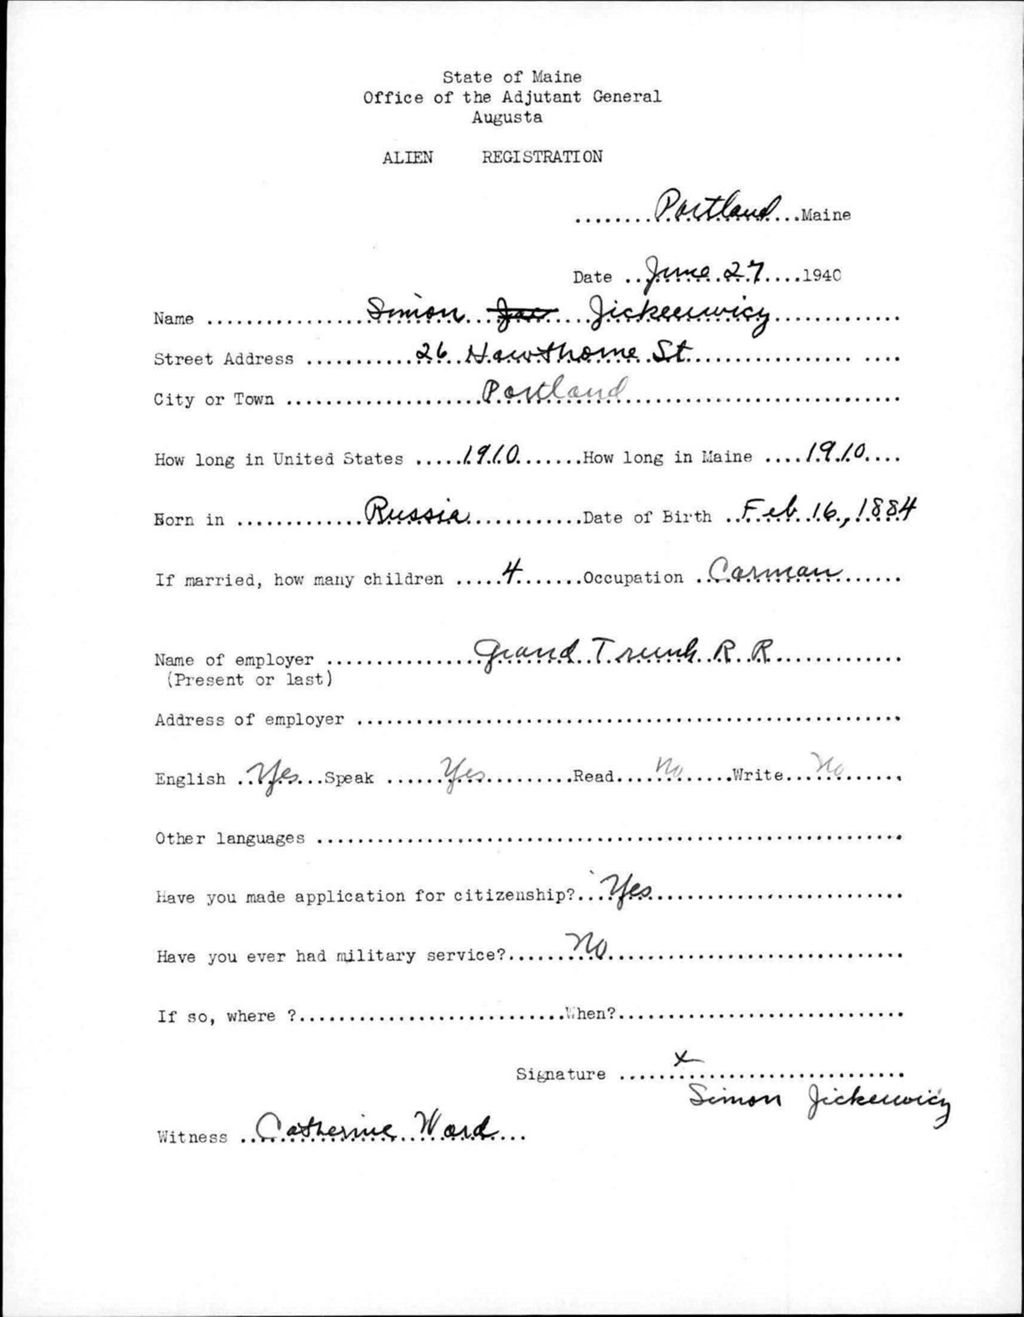 State of Maine
Office of the Adjutant General
Augusta
ALIEN REGISTRATION
........Portland...Maine
Date ..June 27....1940
Name ................Simon Jac Jickeewicz.............
Street Address ...........26 Hawthorne St................. ....
City or Town ....................Portland............................
How long in United States .....1910.......How long in Maine ....1910....
Born in .............Russia............Date of Birth ..Feb. 16, 1884
If married, how many children .....4.......Occupation ..Carman......
Name of employer ...............Grand Trunk R.R.............
(Present or last)
Address of employer .......................................................
English ..Yes...Speak ......Yes.........Read....No......Write...No......
Other languages ...........................................................
Have you made application for citizenship?...Yes.........................
Have you ever had military service?......No..............................
If so, where ?...........................When?.............................
Signature ......x.......................
Simon Jickewicz
Witness ..Catherine Ward...